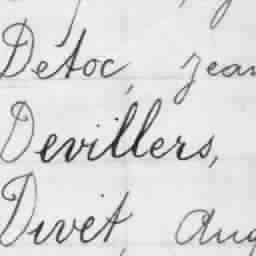 Detoc, Jean
Devillers,
Divet, Aug